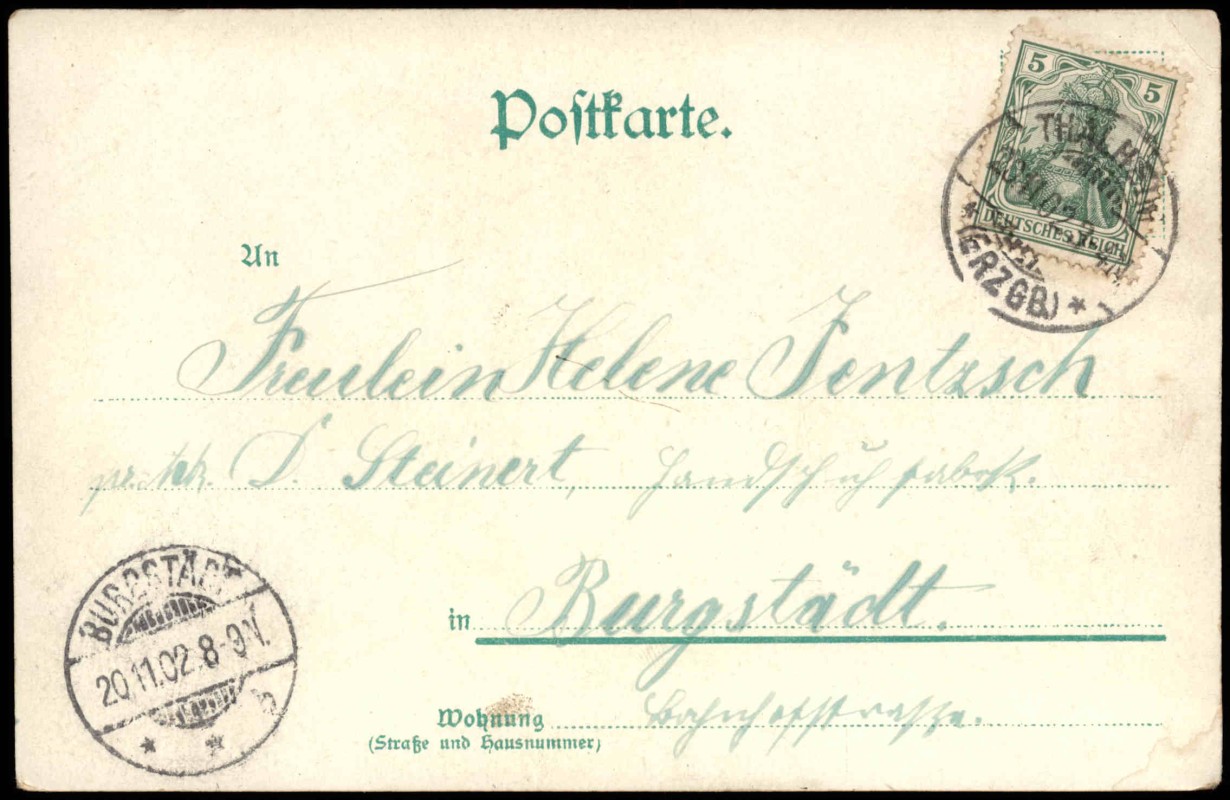 Postkarte.
5 5
DEUTSCHES REICH
THALHEIM
20.11.02
* (ERZGB.) *
An
Fräulein Helene Jentzsch
D. Steinert, Handschuhfabrik.
in Burgstädt.
BURGSTÄDT
20.11.02. 8-9 V.
b
* *
Wohnung Bahnhofstrasse.
(Straße und Hausnummer)